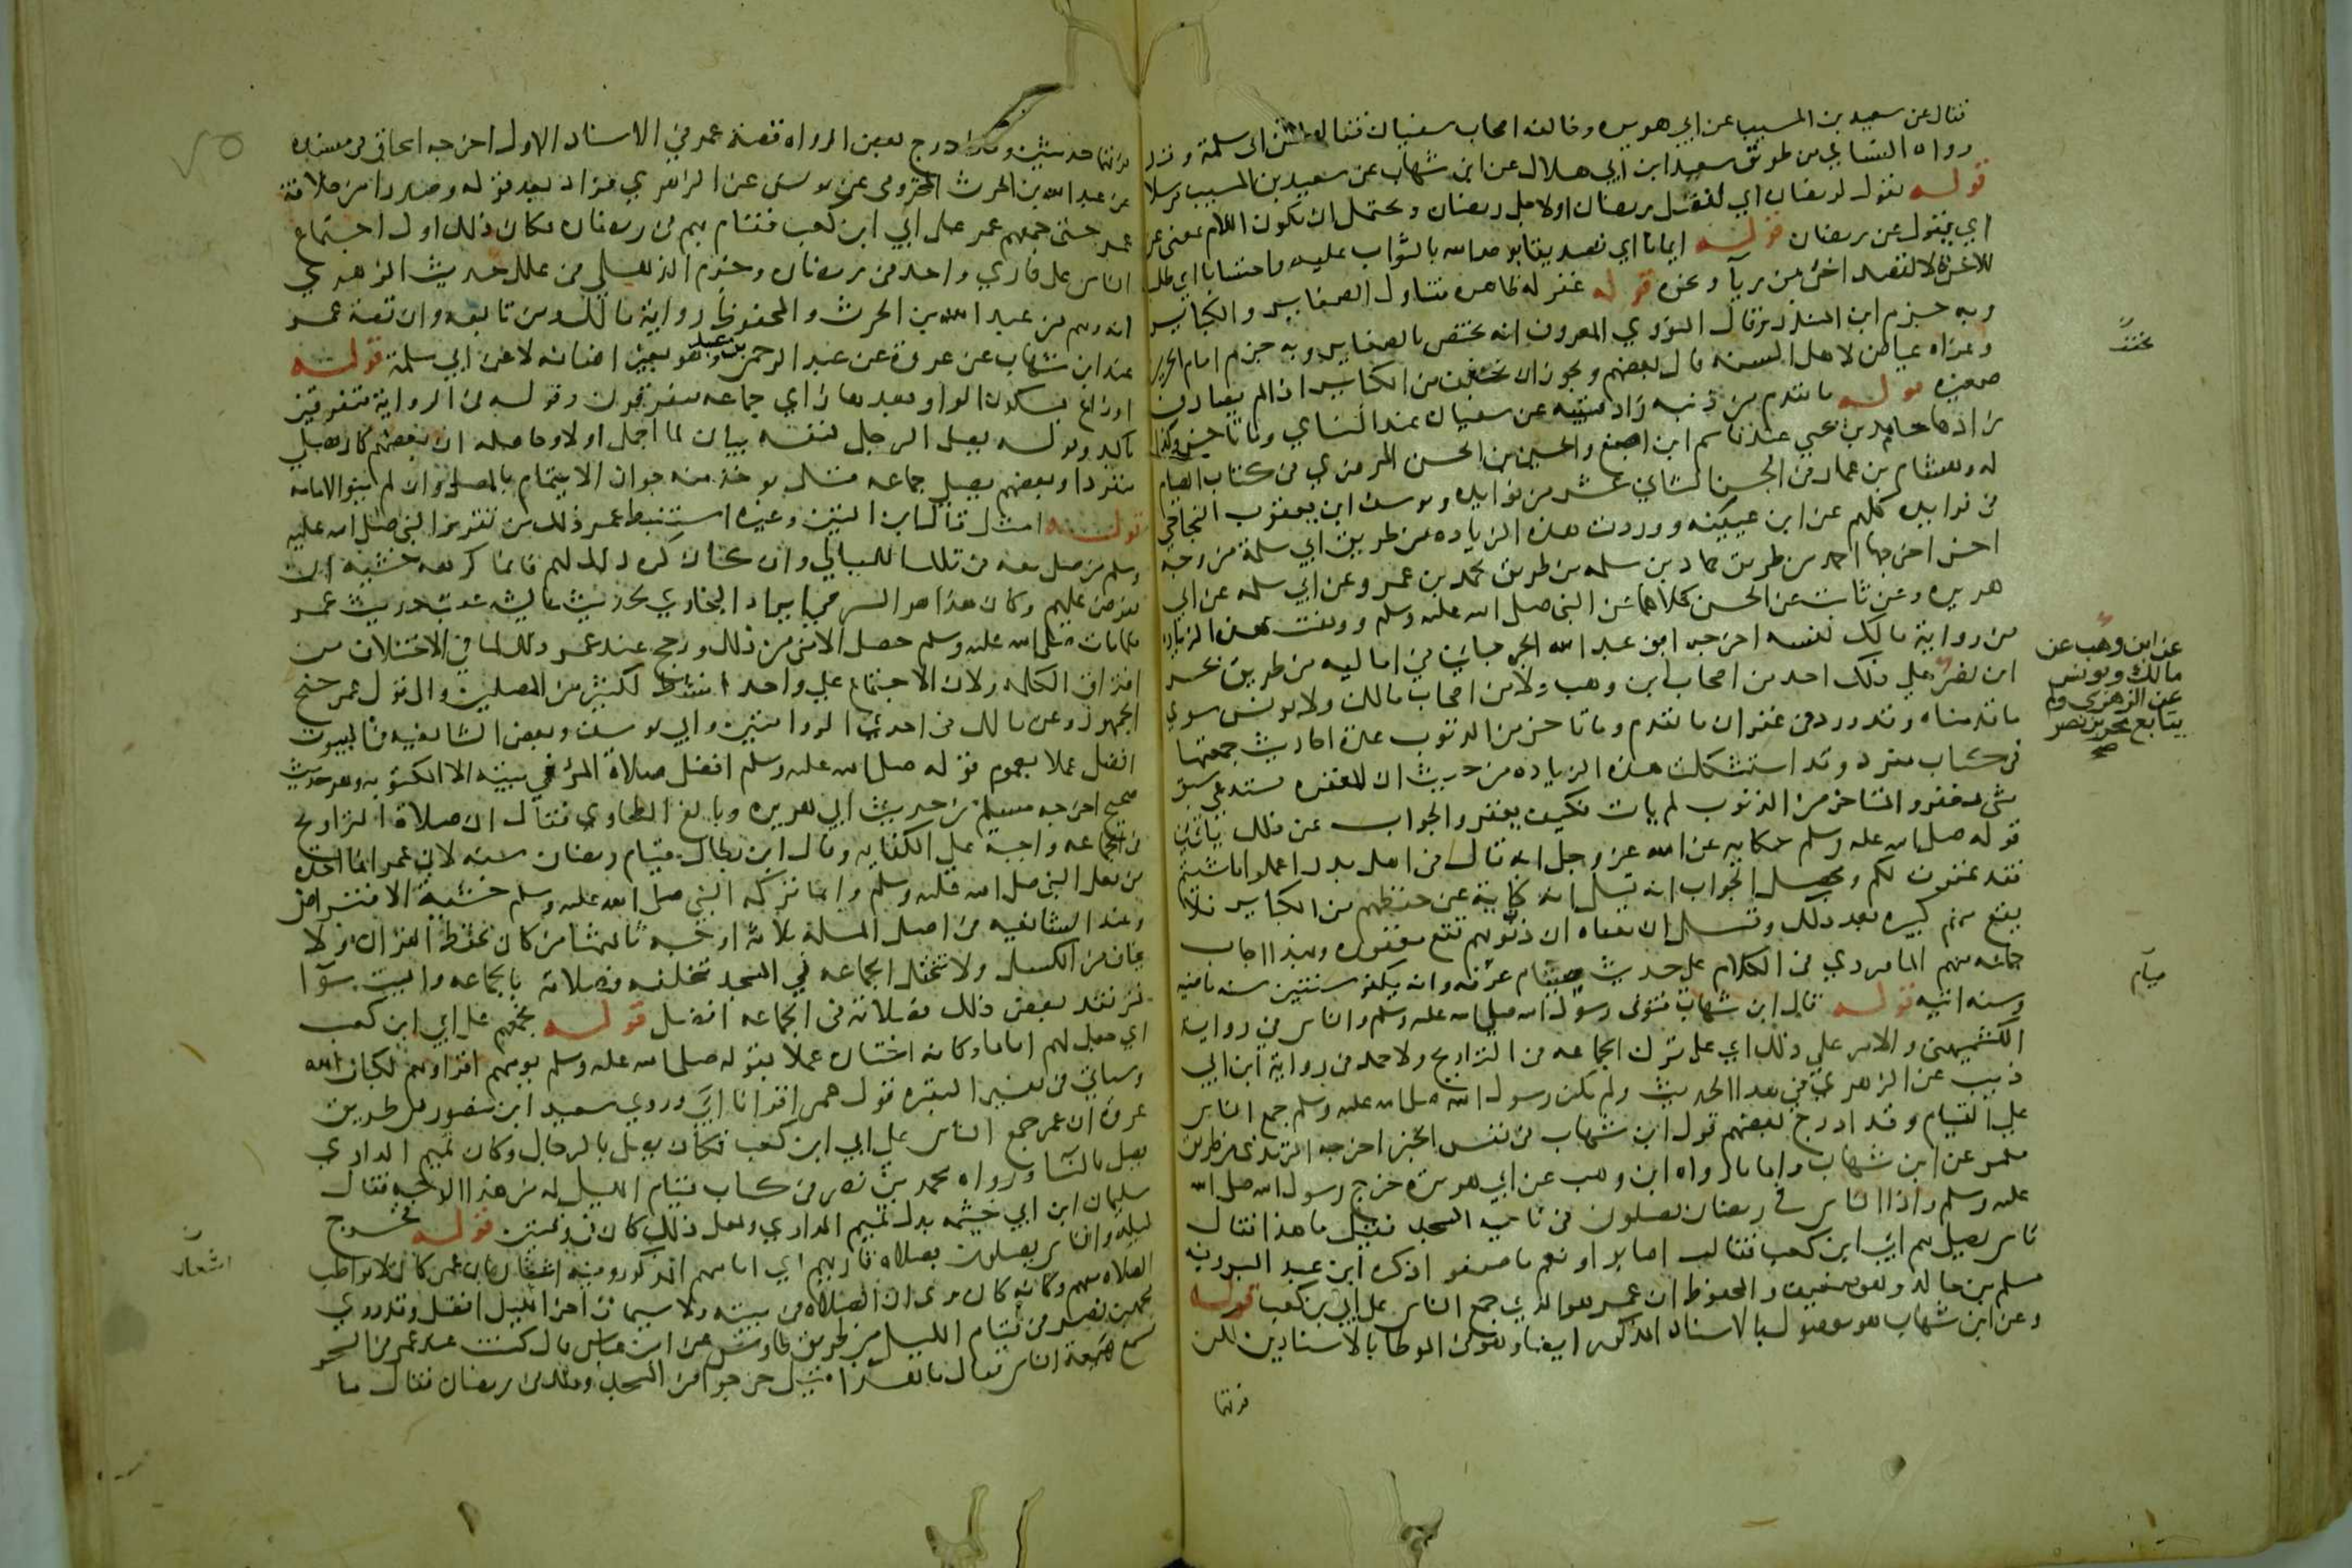 فقال عن سعيد بن المسيب عن ابي هريره وخالفه اصحاب سفيان فقالوا عن ابي سلمة وقد
رواه النسائي من طريق سعيد ابن ابي هلال عن ابن شهاب عن سعيد بن المسيب مرسلا
قوله يقول لرمضان اي لفضل رمضان اولاجل رمضان ويحتمل ان يكون اللام بمعنى عن
اي يقول عن رمضان قوله ايمانا اي تصديقا بوعد الله بالثواب عليه واحتسابا اي طلبا
للاجر لا لقصد اخر من رياء ونحوه قوله غفر له ظاهره يتناول الصغاير والكباير
وبه جزم ابن المنذر وقال النووي المعروف انه يختص بالصغاير وبه جزم امام الحرمين
وعزاه عياض لاهل السنه قال بعضهم ويجوز ان يخفف من الكباير اذا لم يصادف
صغيره قوله ما تقدم من ذنبه زاد قتيبه عن سفيان عند النسائي وما تاخر وكذا
زادها حامد بن يحيى عند قاسم ابن اصبغ والحسين بن الحسن المروزي في كتاب الصيام
له وهشام بن عمار في الجزء الثاني عشر من فوايده ويوسف ابن يعقوب النجاحي
في فوايده كلهم عن ابن عيينه ووردت هذه الزياده من طريق ابي سلمة من وجه
اخر اخرجها احمد من طريق حماد بن سلمه من طريق محمد بن عمرو عن ابي سلمه عن ابي
هريره وعن ثابت عن الحسن كلاهما عن النبي صلى الله عليه وسلم ووقعت هذه الزيادة
من رواية مالك نفسه اخرجه ابو عبد الله الجرجاني في اماليه من طريق بحر
ابن نصر علي ذلك احد من اصحاب ابن وهب ولا من اصحاب مالك ولا يونس سوي
ما قدمناه وقد ورد في غفران ما تقدم وما تاخر من الذنوب عدة احاديث جمعتها
في كتاب مفرد وقد استشكلت هذه الزياده من حديث ان المغفره تستدعي سبق
شي يغفر والمتاخر من الذنوب لم يات فكيف يغفر والجواب عن ذلك ياتي في
قوله صلى الله عليه وسلم حكايه عن الله عز وجل انه قال في اهل بدر اعملوا ما شيتم
فقد غفرت لكم ومحصل الجواب انه قيل انه كناية عن حفظهم من الكباير فلا
يقع منهم كبيره بعد ذلك وقيل ان معناه ان ذنوبهم تقع مغفوره وبهذا اجاب
جماعه منهم الماوردي في الكلام على حديث صيام عرفه وانه يكفر سنتين سنه ماضيه
وسنه اتيه قوله قال ابن شهاب فتوفى رسول الله صلى الله عليه وسلم والناس في رواية
الكشميهني والامر علي ذلك اي على ترك الجماعه في التراويح ولاحمد في رواية ابن ابي
ذيب عن الزهري في هذا الحديث ولم يكن رسول الله صلى الله عليه وسلم جمع الناس
علي القيام وقد ادرج بعضهم قول ابن شهاب في نفس الخبر اخرجه الترمذي من طريق
معمر عن ابن شهاب واما ما رواه ابن وهب عن ابي هريرة خرج رسول الله صلى الله
عليه وسلم واذا الناس في رمضان يصلون في ناحيه المسجد فقيل ما هذا فقال
ناس يصلي بهم ابي ابن كعب فقال اصابوا ونعم ما صنعوا ذكره ابن عبد البر وفيه
مسلم بن خالد وهو ضعيف والمحفوظ ان عمر هو الذي جمع الناس على ابي بن كعب قوله
وعن ابن شهاب هو موصول بالاسناد المذكور ايضا وهو في الموطا بالاسنادين لكن
فرقهما
عن ابن وهب عن
مالك ويونس
عن الزهري ولم
يتابع بحر بن نصر
صح
صيام
فرقهما حديثين وقد ادرج بعض الرواه قصه عمر في الاسناد الاول اخرجه اسحاق في مسنده
عن عبد الله بن الحرث المخزومي عن يونس عن الزهري فزاد بعد قوله وصدرا من خلافة
عمر حتى جمعهم عمر على ابي ابن كعب فقام بهم في رمضان فكان ذلك اول اجتماع
الناس على قاري واحد في رمضان وجزم الذهلي في علل حديث الزهري
انه وهم من عبد الله بن الحرث والمحفوظ رواية مالك ومن تابعه وان قصة عمر
عند ابن شهاب عن عروة عن عبد الرحمن بن عبد وهو بغير اضافه لا عن ابي سلمة قوله
اوزاع بسكون الواو بعدها زاي جماعه متفرقون وقوله في الرواية متفرقين
تاكيد وقوله يصلي الرجل لنفسه بيان لما اجمل اولا وحاصله ان بعضهم كان يصلي
منفردا وبعضهم يصلي جماعه قيل يوخذ منه جواز الايتمام بالمصلي وان لم ينو الامامه
قوله امثل قال ابن التين وغيره استنبط عمر ذلك من تقرير النبي صلى الله عليه
وسلم من صلى معه في تلك الليالي وان كان كره ذلك لهم فانما كرهه خشية ان
يفرض عليهم وكان هذا هو السر في ايراد البخاري لحديث عايشه عقب حديث عمر
فلما مات صلى الله عليه وسلم حصل الامن من ذلك ورجح عند عمر ذلك لما في الاختلاف من
افتراق الكلمه ولان الاجتماع علي واحد انشط لكثير من المصلين والي قول عمر جنح
الجمهور وعن مالك في احدي الروايتين وابي يوسف وبعض الشافعيه في البيوت
افضل عملا بعموم قوله صلى الله عليه وسلم افضل صلاة المرء في بيته الا المكتوبه وهو حديث
صحيح اخرجه مسلم من حديث ابي هريره وبالغ الطحاوي فقال ان صلاة التراويح
في الجماعه واجبة علي الكفايه وقال ابن بطال قيام رمضان سنه لان عمر انما اخذه
من فعل النبي صلى الله عليه وسلم وانما تركه النبي صلى الله عليه وسلم خشية الافتراض
وعند الشافعيه في اصل المسلة ثلاثة اوجه ثالثها من كان يحفظ القران ولا
يخاف من الكسل ولا تختل الجماعه في المسجد بتخلفه فصلاته بالجماعه والبيت سوآ
فمن فقد بعض ذلك فصلاته في الجماعه افضل قوله فجمعهم على ابي ابن كعب
اي جعله لهم اماما وكانه اختاره عملا بقوله صلى الله عليه وسلم يومهم اقراوهم لكتاب الله
وسياتي في تفسير البقره قول عمر اقرانا ابي وروي سعيد ابن منصور من طريق
عروة ان عمر جمع الناس علي ابي ابن كعب فكان يصلي بالرجال وكان تميم الداري
يصلي بالنسآ ورواه محمد بن نصر في كتاب قيام الليل له من هذا الوجه فقال
سليمان ابن ابي حثمه بدل تميم الداري ولعل ذلك كان في وقتين قوله فخرج
ليلة والناس يصلون بصلاة قاريهم اي امامهم المذكور وفيه اشعار بان عمر كان لا يواظب
الصلاه معهم وكانه كان يرى ان الصلاه في بيته ولا سيما في اخر الليل افضل وقد روي
محمد بن نصر في قيام الليل من طريق طاوس عن ابن عباس قال كنت عند عمر في المسجد
فسمع هيعة الناس فقال ما هذا قيل خرجوا من المسجد وذلك في رمضان فقال ما
اشعار